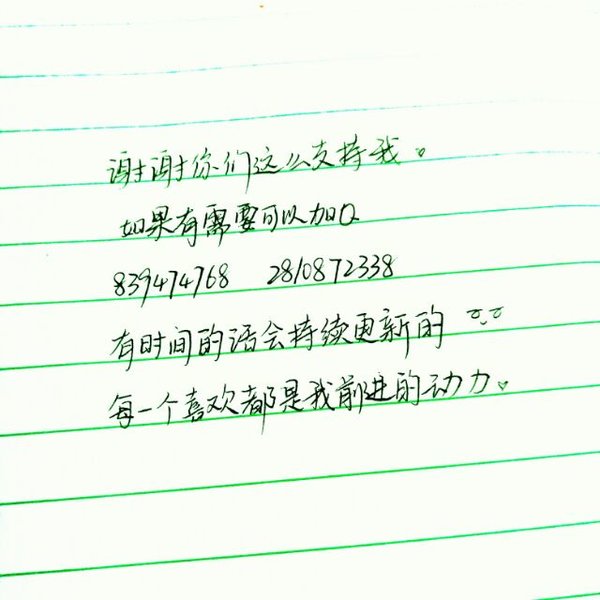 谢谢你们这么支持我。
如果有需要可以加Q
839474768 2810872338
有时间的话会持续更新的
每一个喜欢都是我前进的动力。